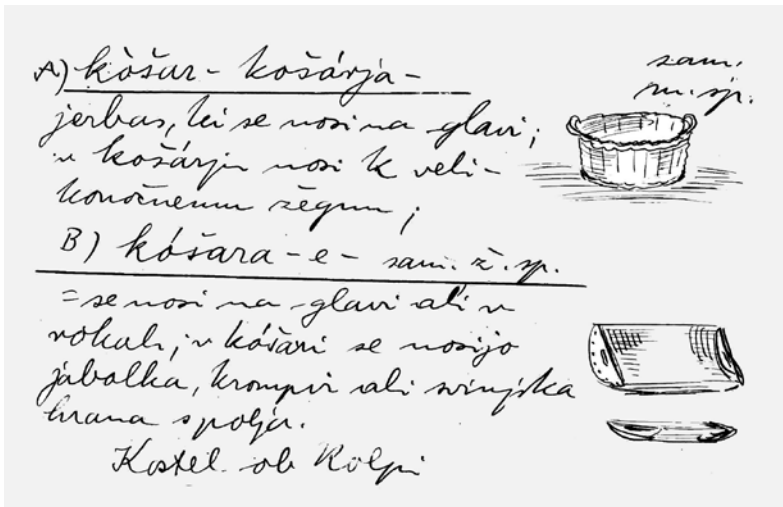 A) kòšar - košárja - sam. m. sp.
jerbas, ki se nosi na glavi;
v košárju nosi k veli-
konočnemu žegnu;
B) kóšara - e - sam. ž. sp.
= se nosi na glavi ali v
rokah; v kóšari se nosijo
jabolka, krompir ali svinjska
hrana s polja.
Kostel ob Kolpi